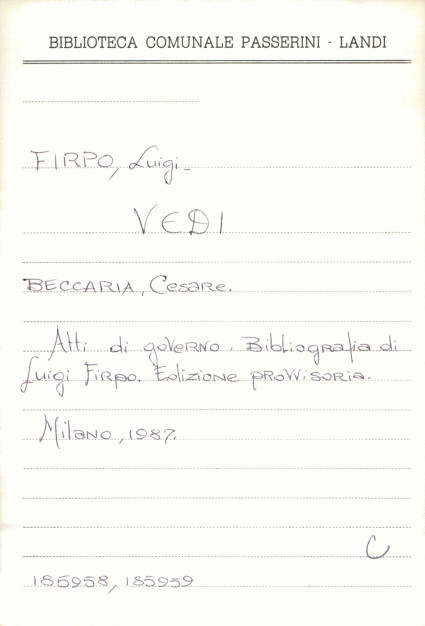 BIBLIOTECA COMUNALE PASSERINI - LANDI
FIRPO, Luigi_
VEDI
BECCARIA, Cesare.
Atti di governo. Bibliografia di
Luigi Firpo. Edizione provvisoria.
Milano, 1987.
C
185958, 185959